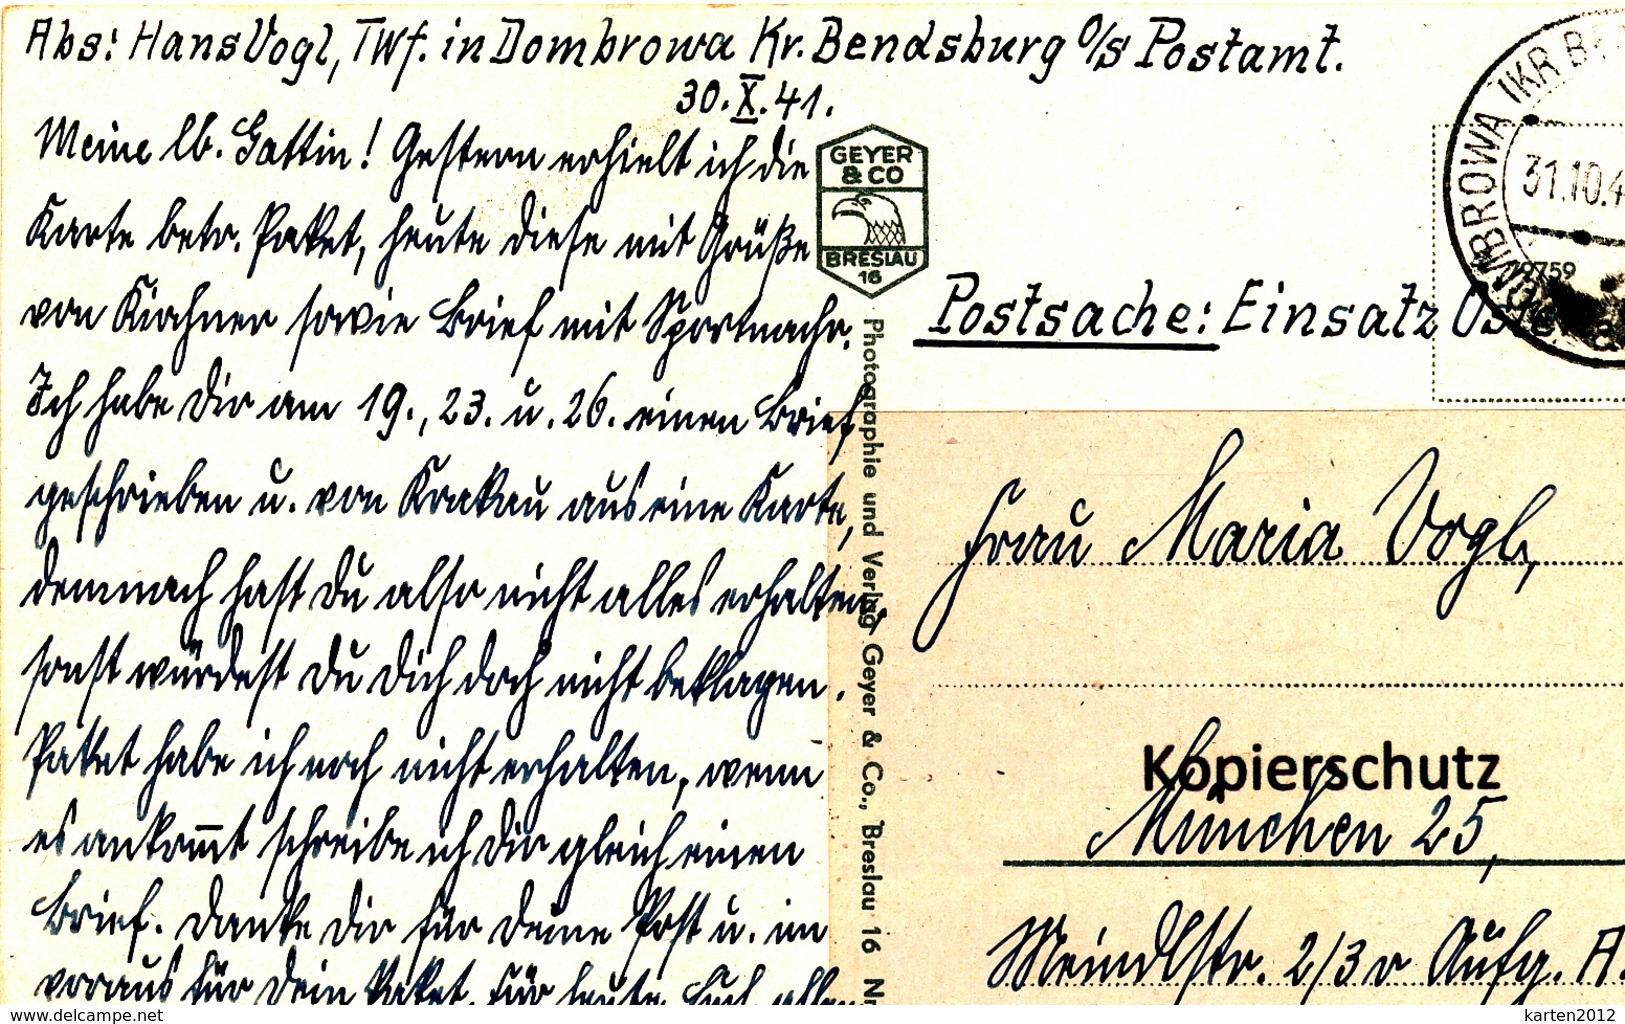 Abs: Hans Vogl, TWf. in Dombrowa Kr. Bendsburg O/S Postamt.
30.X.41.
Meine lb. Gattin! Gestern erhielt ich die
Karte betr. Paket, heute diese mit Grüße
von Kirchner sowie Brief mit Sportnachr.
Ich habe Dir am 19., 23. u. 26. einen Brief
geschrieben u. von Krakau aus eine Karte,
demnach hast Du also nicht alles erhalten,
sonst würdest Du Dich doch nicht beklagen.
Paket habe ich noch nicht erhalten, wenn
es ankommt schreibe ich Dir gleich einen
Brief. Danke Dir für Deine Post u. im
voraus für Dein Paket. Für heute Euch allen
GEYER
& CO
BRESLAU
16
Photographie und Verlag Geyer & Co., Breslau 16 Nr
DOMBROWA (KR BE
31.10.4
19759
a
Postsache: Einsatz Osten
Frau Maria Vogl,
Kopierschutz
München 25,
Meindlstr. 2/3 r Aufg. A.
www.delcampe.net
karten2012